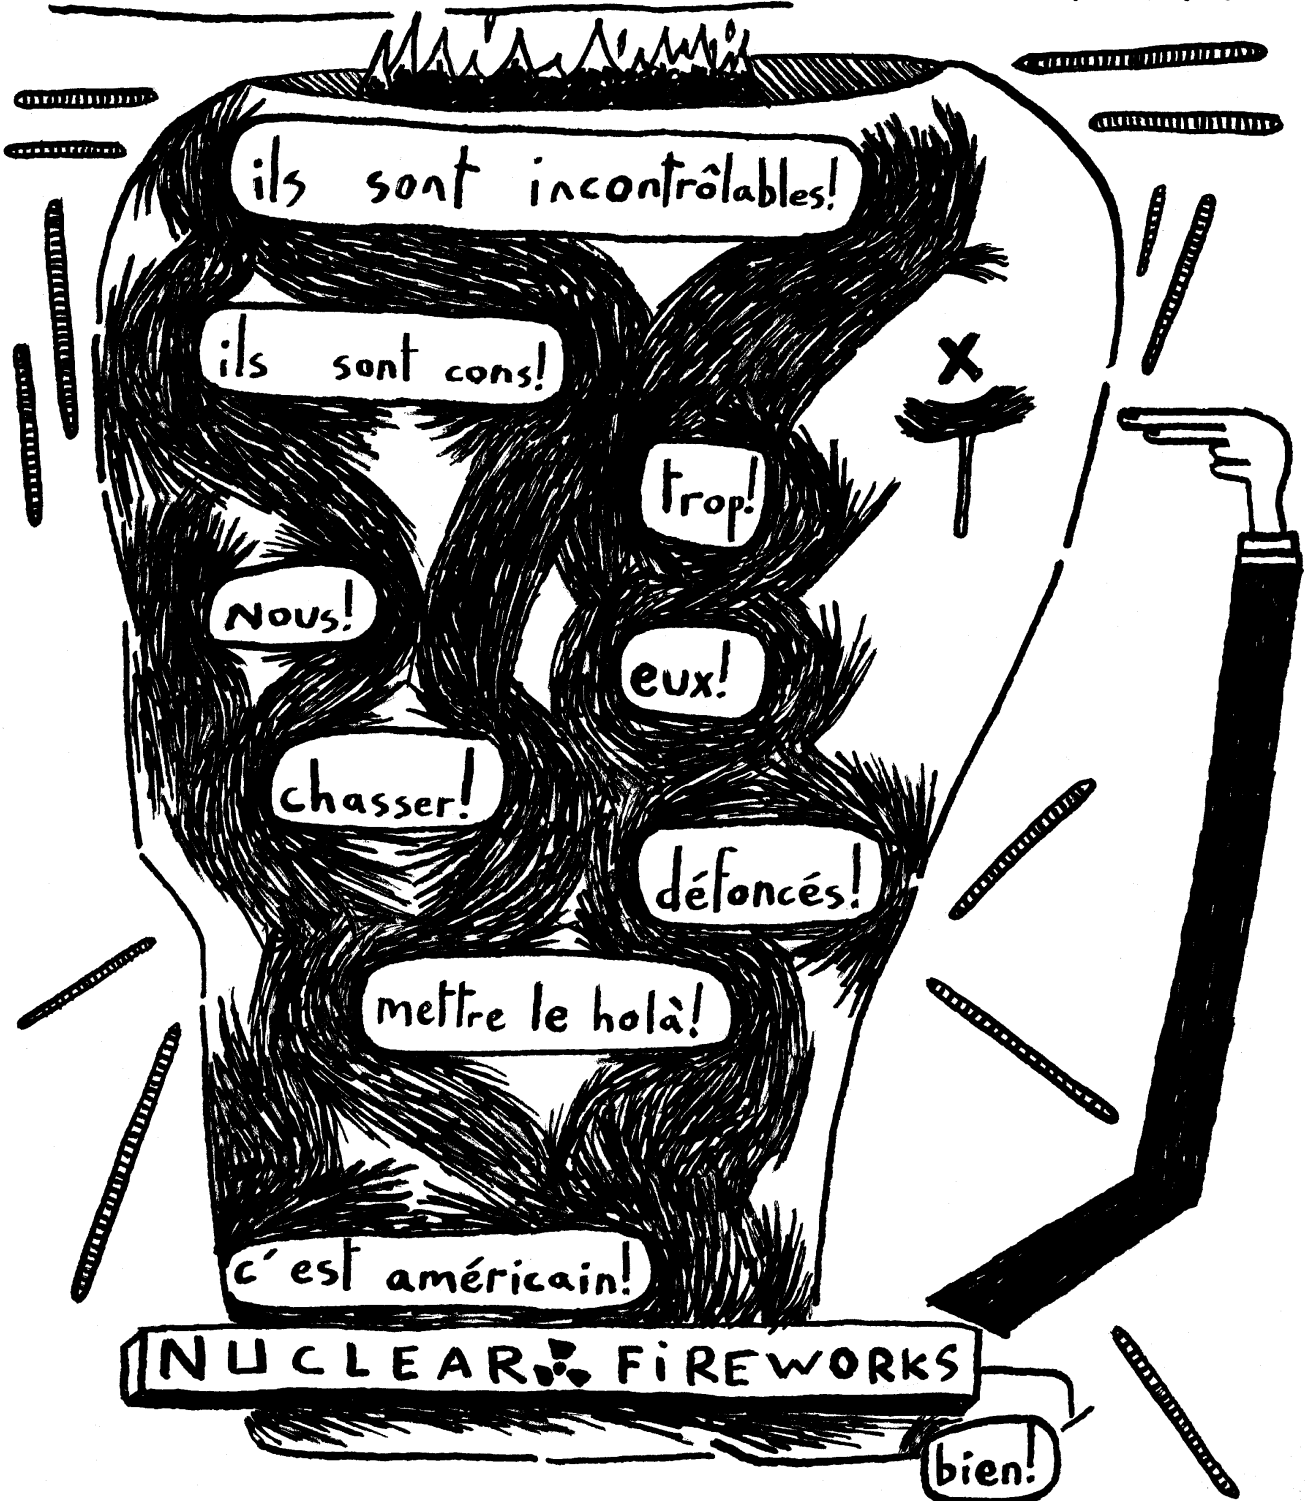 ils sont incontrôlables!
ils sont cons!
trop!
Nous!
eux!
chasser!
défoncés!
mettre le holà!
c'est américain!
NUCLEAR FiREWORKS
bien!